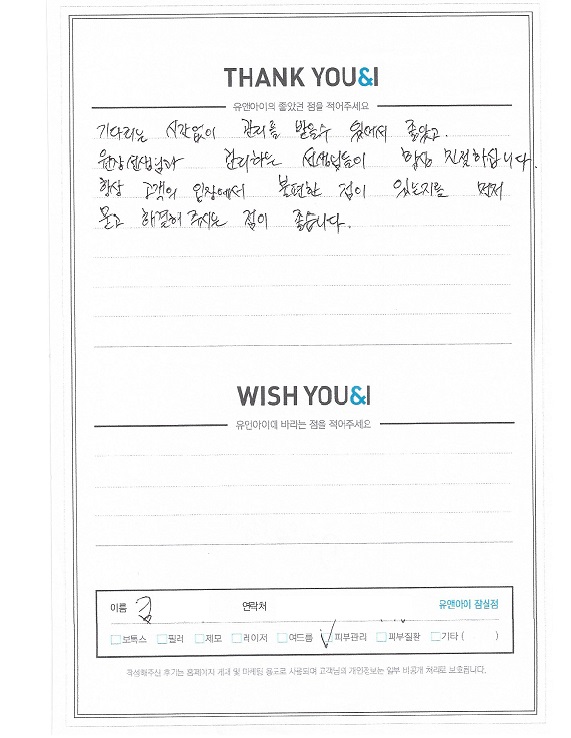 THANK YOU&I
유앤아이의 좋았던 점을 적어주세요
기다리는 시간없이 관리를 받을수 있어서 좋았고.
원장선생님과 관리하는 선생님들이 항상 친절하십니다.
항상 고객의 입장에서 불편한 점이 있는지를 먼저
묻고 해결해 주시는 점이 좋습니다.
WISH YOU&I
유앤아이에 바라는 점을 적어주세요
이름 김 연락처 유앤아이 잠실점
보톡스 필러 제모 레이저 여드름 피부관리 피부질환 기타 ( )
작성해주신 후기는 홈페이지 게재 및 마케팅 용도로 사용되며 고객님의 개인정보는 일부 비공개 처리로 보호됩니다.